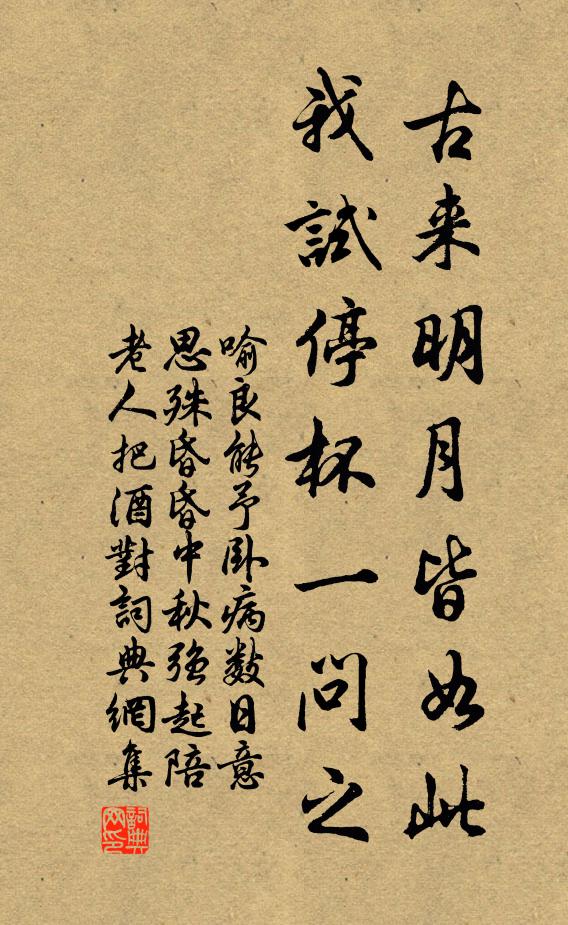 古来明月皆如此
我試停杯一問之
喻良能予卧病数日意
思殊昏昏中秋强起陪
老人把酒對詞典網集
詞典网印